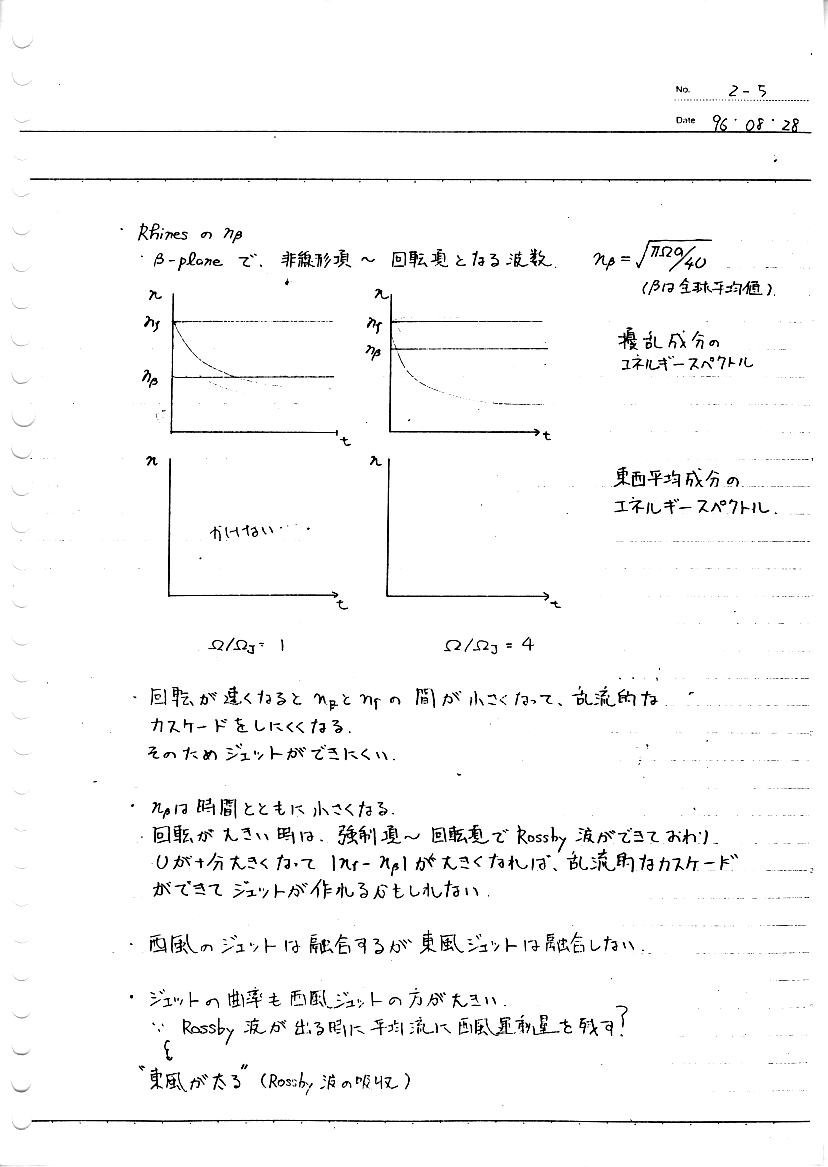 No. 2-5
Date 96・08・28
・Rhines の nβ
・β-plane で、非線形項 〜 回転項となる波数.
nβ = √πΩa/4U
(βは全球平均値).
n
nf
nβ
t
n
nf
nβ
t
擾乱成分の
エネルギースペクトル
n
かけない…
t
n
t
東西平均成分の
エネルギースペクトル.
Ω/ΩJ = 1
Ω/ΩJ = 4
・回転が速くなると nβと nfの間が小さくなって、乱流的な
カスケードをしにくくなる.
そのためジェットができにくい.
・nβは時間とともに小さくなる.
回転が大きい時は、強制項〜回転項でRossby波ができておわり.
Uが十分大きくなって |nf - nβ|が大きくなれば、乱流的なカスケード
ができてジェットが作れるかもしれない.
・西風のジェットは融合するが東風ジェットは融合しない.
・ジェットの曲率も西風ジェットの方が大きい.
∵ Rossby波が出る時に平均流に西風運動量を残す?
"東風が太る" (Rossby波の吸収)